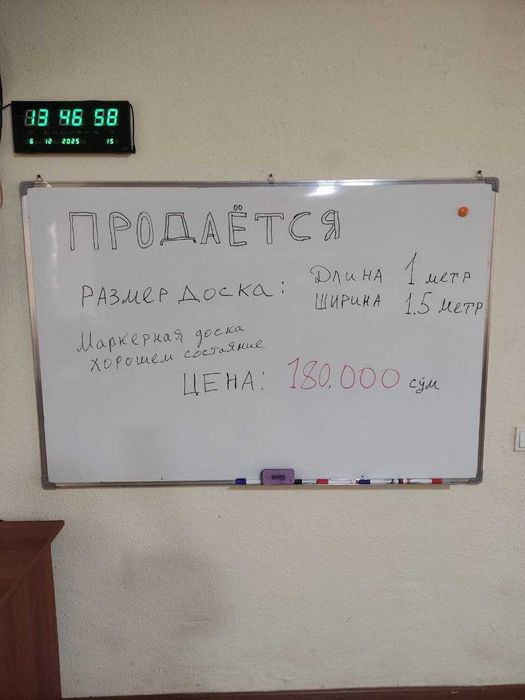 13 46 58
6 12 2025 15
ПРОДАЁТСЯ
РАЗМЕР ДОСКА: ДЛИНА 1 метр
ШИРИНА 1.5 метр
Маркерная доска
хорошем состояние
ЦЕНА: 180.000 сўм